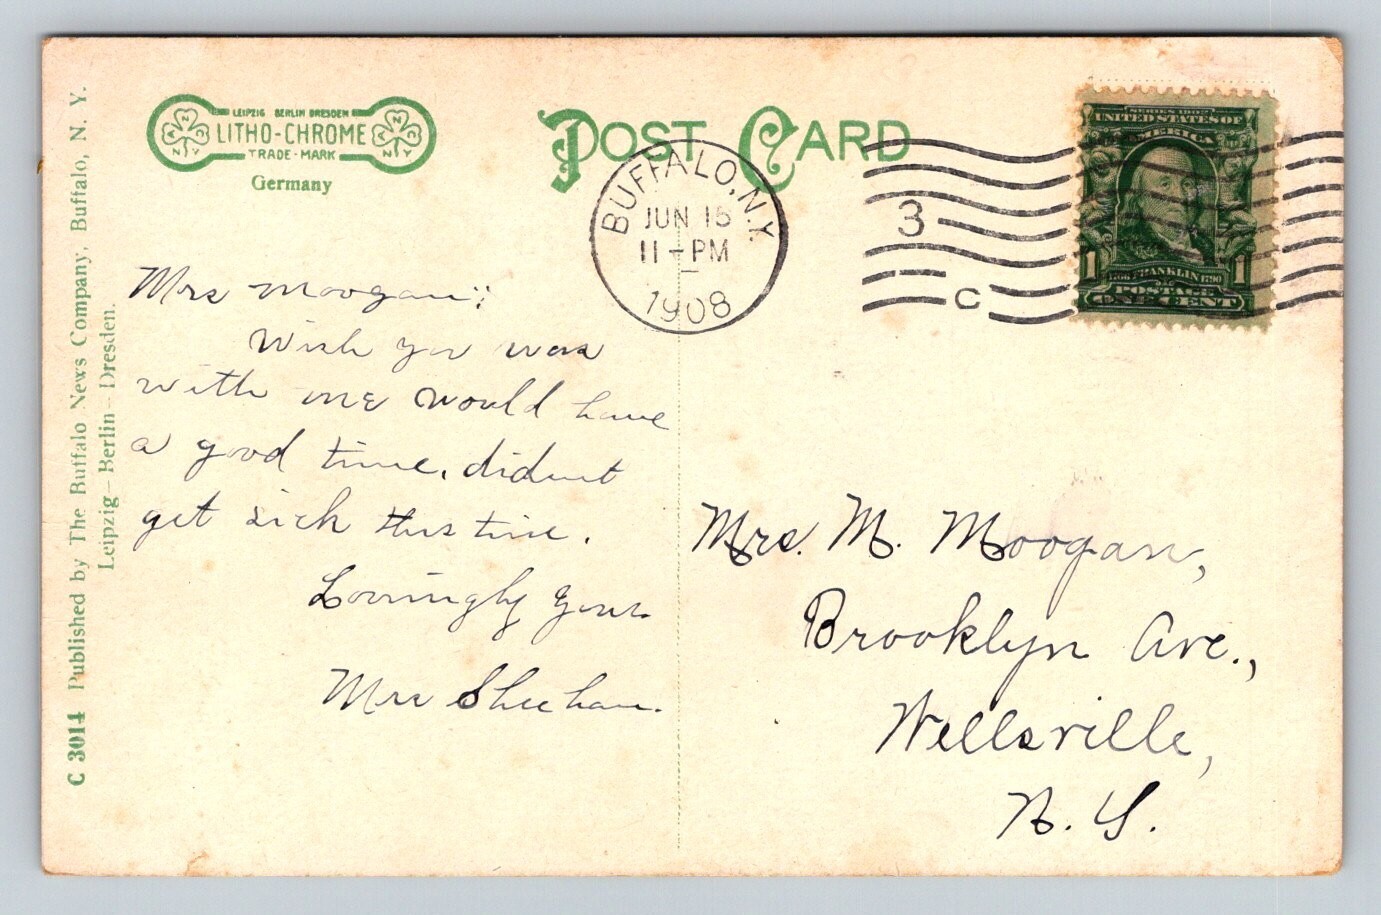 C 3014 Published by The Buffalo News Company, Buffalo, N. Y.
Leipzig - Berlin - Dresden.
LEIPZIG BERLIN DRESDEN
LITHO-CHROME
TRADE-MARK
A N C
N Y
A N C
N Y
Germany
POST CARD
BUFFALO, N.Y.
JUN 15
11 - PM
1908
3
C
SERIES 1902
UNITED STATES OF
AMERICA
1 1
1706 FRANKLIN 1790
POSTAGE
ONE CENT
Mrs Moogan:
Wish you was
with me would have
a good time. didnt
get sick this time.
Lovingly Yours
Mrs Sheehan.
Mrs. M. Moogan,
Brooklyn Ave.,
Wellsville,
N. Y.